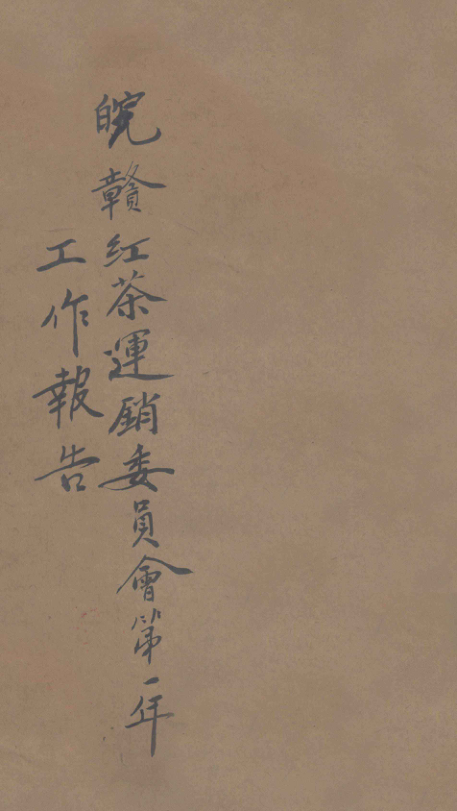 皖贛紅茶運銷委員會第一年
工作報告